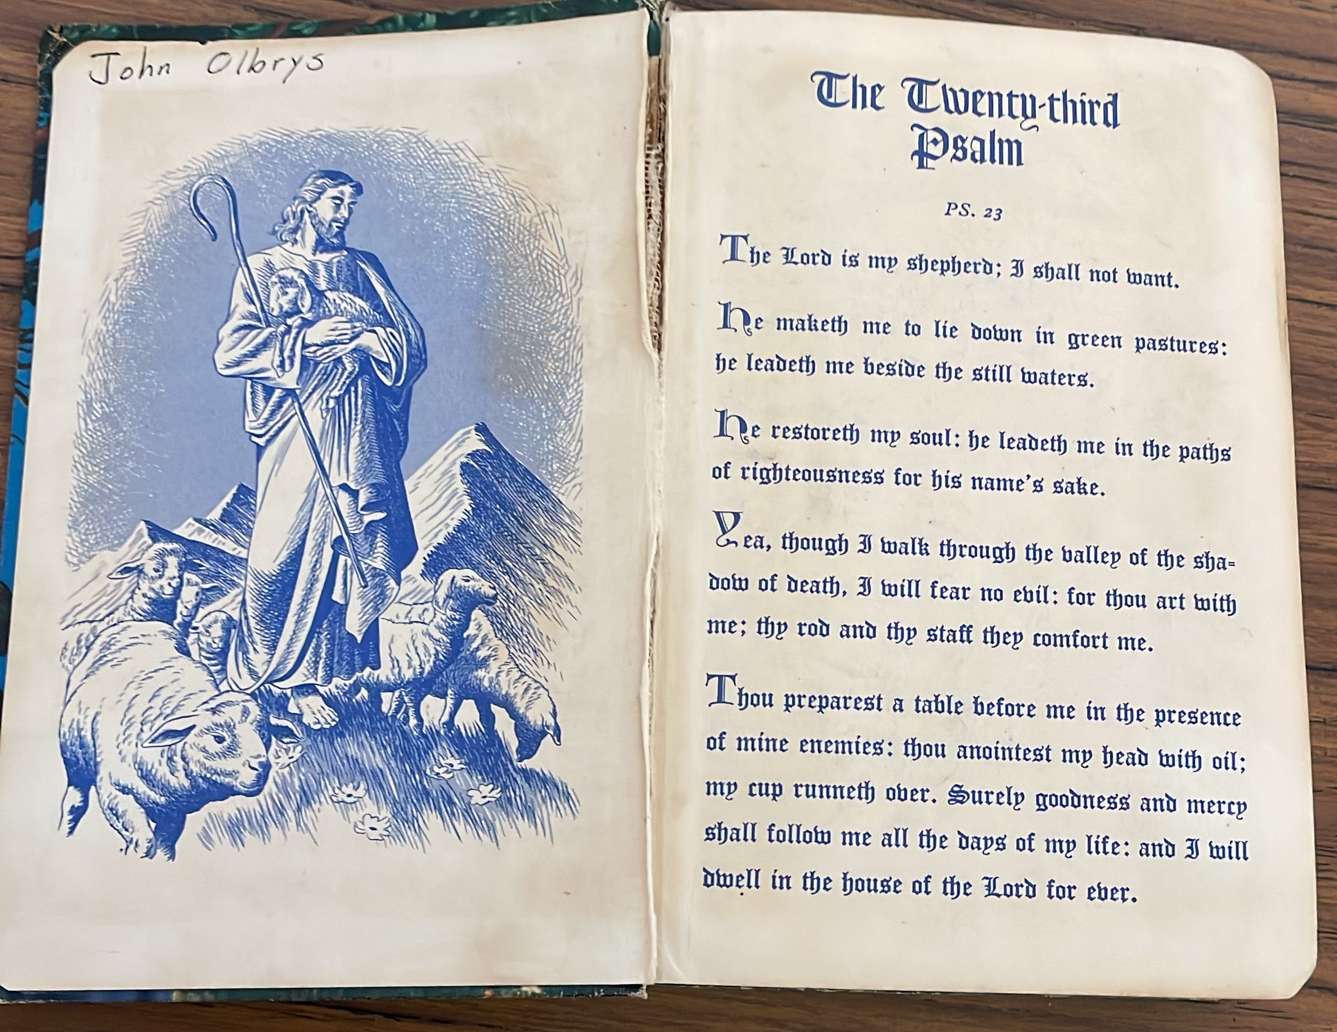 John Olbrys
The Twenty-third
Psalm
PS. 23
The Lord is my shepherd; I shall not want.
He maketh me to lie down in green pastures:
he leadeth me beside the still waters.
He restoreth my soul: he leadeth me in the paths
of righteousness for his name's sake.
Yea, though I walk through the valley of the sha-
dow of death, I will fear no evil: for thou art with
me; thy rod and thy staff they comfort me.
Thou preparest a table before me in the presence
of mine enemies: thou anointest my head with oil;
my cup runneth over. Surely goodness and mercy
shall follow me all the days of my life: and I will
dwell in the house of the Lord for ever.